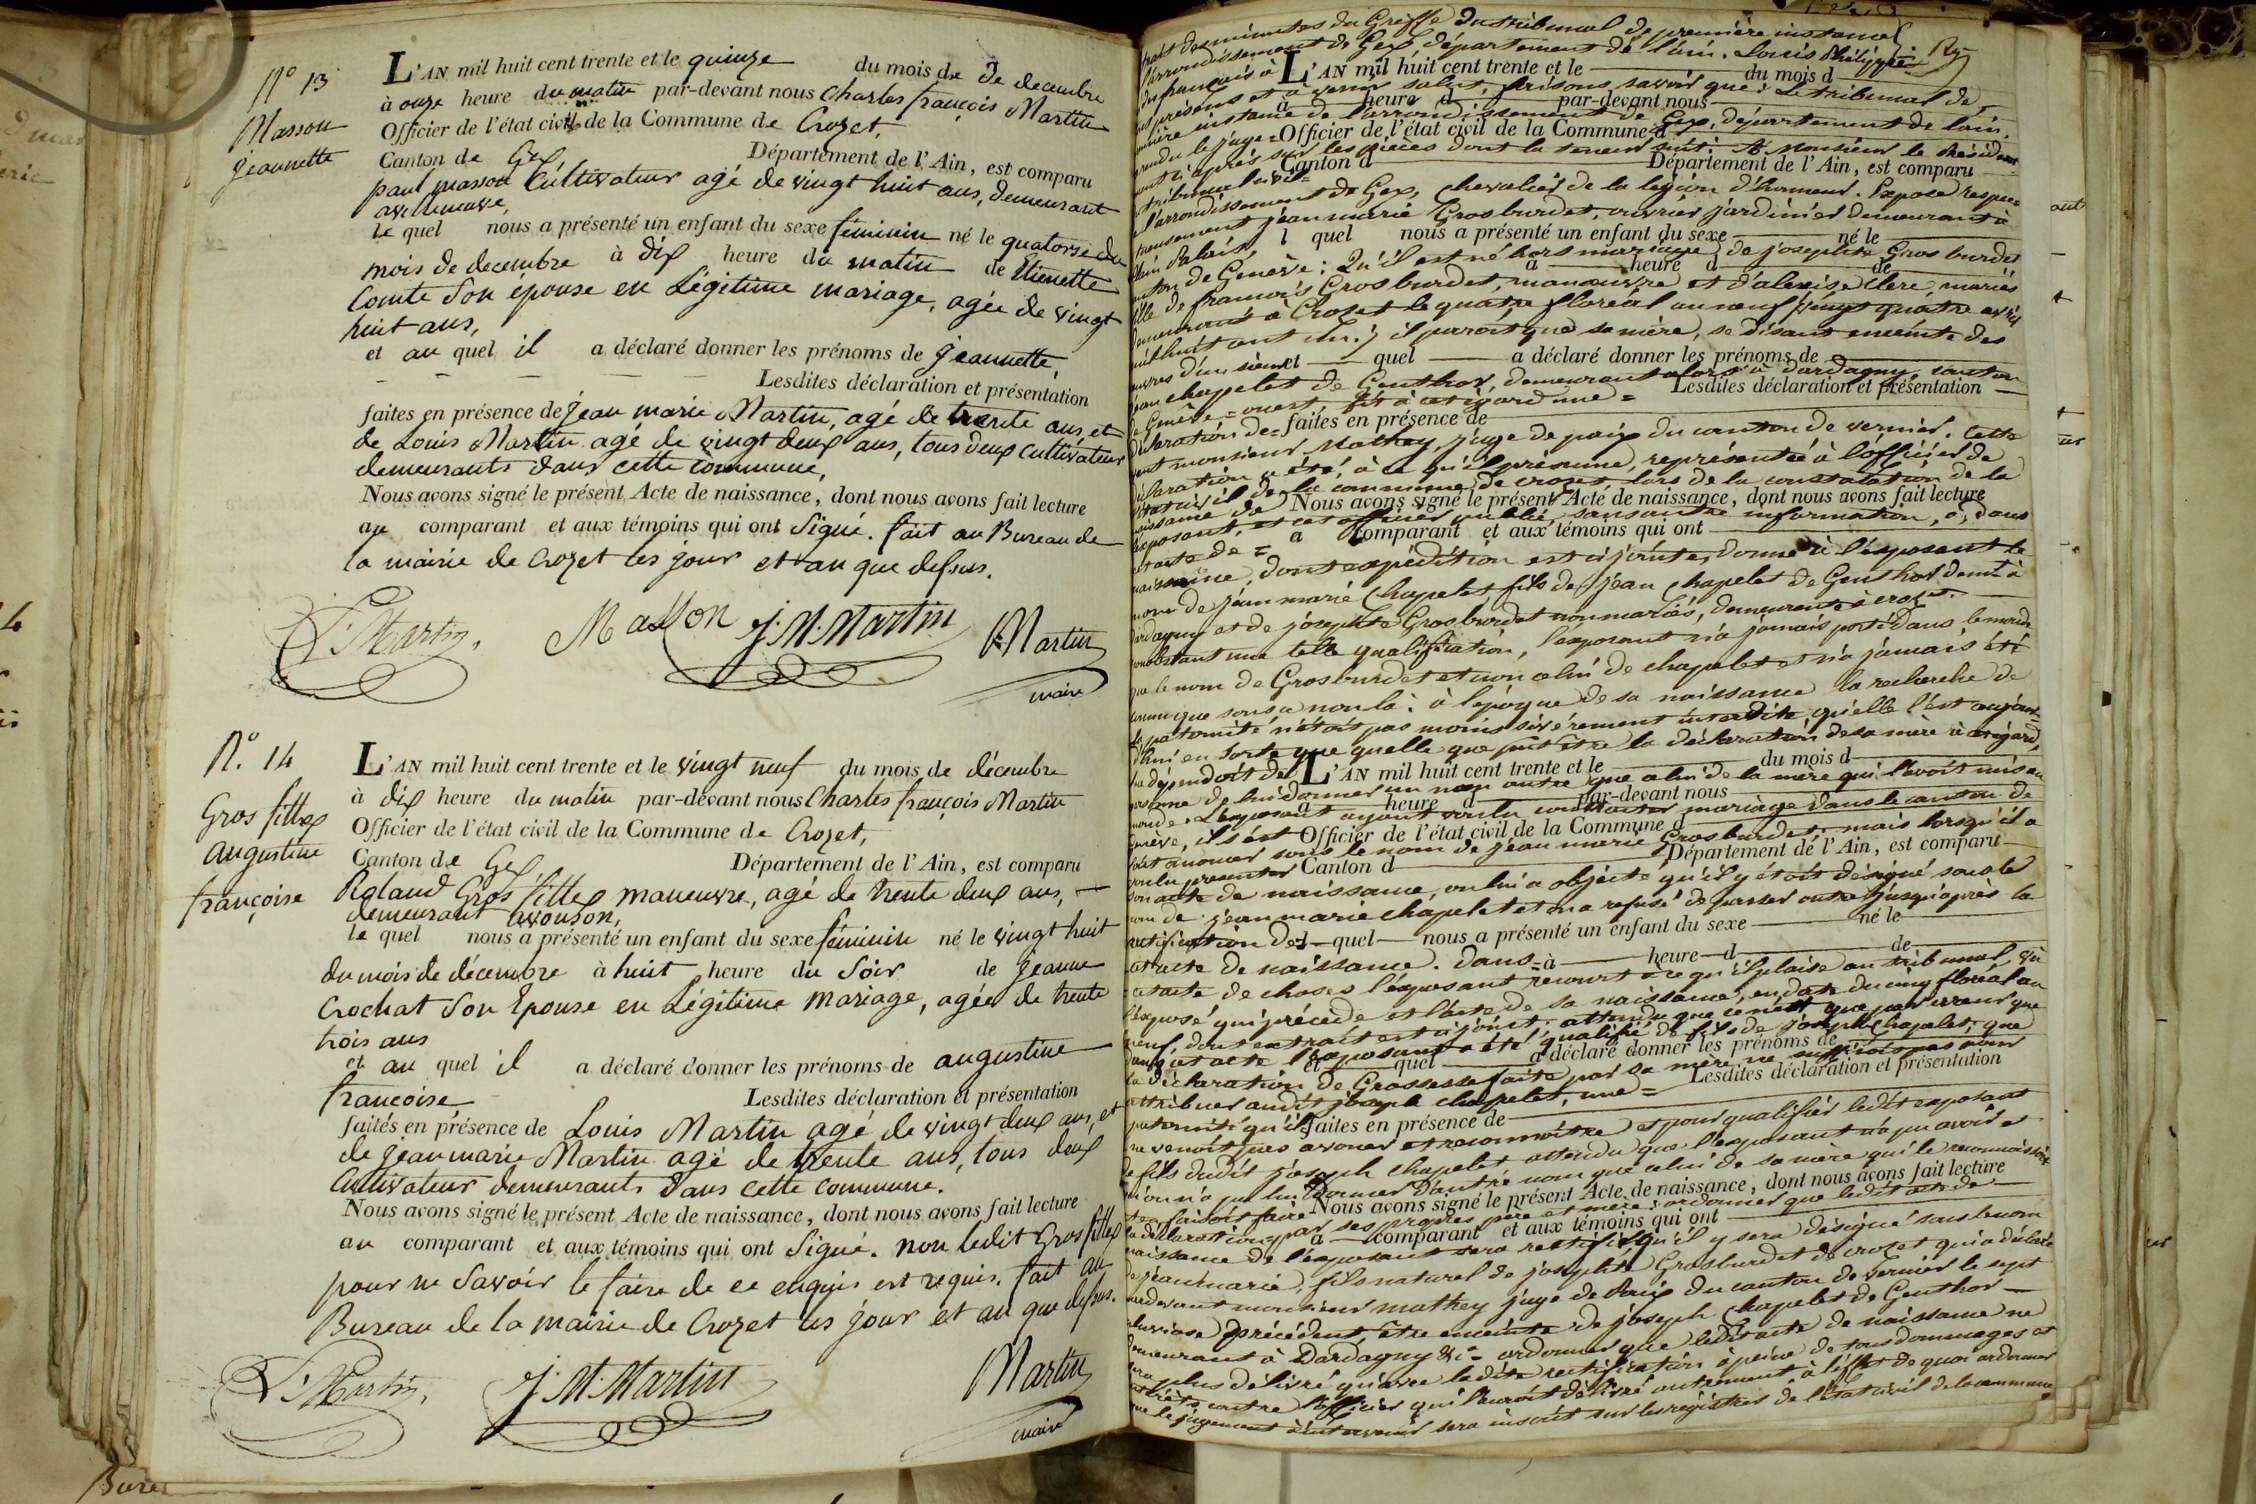 N° 13
Masson
jeannette
L'AN mil huit cent trente et le quinze du mois de de decembre
à onze heure du matin par-devant nous Charles françois Martin
Officier de l'état civil de la Commune de Crozet,
Canton de Gex Département de l'Ain, est comparu
paul masson Cultivateur agé de vingt huit ans, demeurant
avilleneuve,
le quel nous a présenté un enfant du sexe féminin né le quatorse du
mois de decembre à dix heure du matin de Etienette
Comte Son epouse en Légitime mariage, agée de vingt
huit ans,
et au quel il a déclaré donner les prénoms de jeannette,
Lesdites déclaration et présentation
faites en présence de jean marie Martin, agé de trente ans, et
de Louis Martin agé de vingt deux ans, tous deux cultivateur
demeurants dans cette commune,
Nous avons signé le présent Acte de naissance, dont nous avons fait lecture
au comparant et aux témoins qui ont Signé. fait au Bureau de
la mairie de Crozet les jour et an que dessus.
L: Martin. Masson J. M. Martin Martin
maire
N.° 14
Gros fillex
augustine
françoise
L'AN mil huit cent trente et le vingt neuf du mois de décembre
à dix heure du matin par-devant nous Charles françois Martin
Officier de l'état civil de la Commune de Crozet,
Canton de Gex, Département de l'Ain, est comparu
Roland Gros fillex maneuvre, agé de trente deux ans,
demeurant avouson,
le quel nous a présenté un enfant du sexe féminin né le vingt huit
du mois de décembre à huit heure du Soir de jeanne
Crochat Son Epouse en Légitime Mariage, agée de trente
trois ans
et au quel il a déclaré donner les prénoms de augustine
francoise, Lesdites déclaration et présentation
faites en présence de Louis Martin agé de vingt deux ans, et
de jean marie Martin agé de trente ans, tous deux
Cultivateur demeurants dans cette commune.
Nous avons signé le présent Acte de naissance, dont nous avons fait lecture
au comparant et aux témoins qui ont Signé. non ledit Gros fillex
pour ne Savoir le faire de ce enquis et requis. fait au
Bureau de la mairie de Crozet les jour et an que dessus.
L: Martin, J. M. Martin Martin
maire
des minutes du Greffe du tribunal de première instance
l'arrondissement de Gex, département de l'ain. Louis Philippe Roy
des français à L'AN mil huit cent trente et le du mois d
présens et à venir salut, faisons savoir que: Le tribunal de
à heure d par-devant nous
instance de l'arrondissement de Gex, département de l'ain,
rendu le juge= Officier de l'état civil de la Commune d
ci après sur les pièces dont la teneur suit: A Monsieur le Président
tribunal civil= Canton d Département de l'Ain, est comparu
l'arrondissement de Gex, Chevalier de la légion d'honneur. Expose respec=
tueusement jean marie Grosburdet, ouvrier jardinier demeurant à
Palais, l quel nous a présenté un enfant du sexe né le
de Genève: Qu'il est né hors mariage de josephte Grosburdet
à heure d de
fille de françois Grosburdet, manœuvre et d'alexise Clerc, mariés
demeurant à Crozet le quatre floréal an neuf (vingt quatre avril
mil huit cent un.) il paroit que sa mère, se disant enceinte des
œuvres d'un sieur et quel a déclaré donner les prénoms de
jean chapelet de Genthod, demeurant alors à dardagny, canton
de Genève= ouest, fit à cet égard une= Lesdites déclaration et présentation
déclaration de= faites en présence de
monsieur Mathey, juge de paix du canton de vernier. Cette
déclaration a été, à ce qu'il présume, représentée à l'officier de
l'état civil de la commune de crozet, lors de la constatation de la
naissance de Nous avons signé le présent Acte de naissance, dont nous avons fait lecture
l'exposant, et cet officier public, sans autre information, a, dans
acte de= a comparant et aux témoins qui ont
naissance, dont expédition est ci jointe, donné à l'exposant le
nom de jean marie Chapelet, fils de jean Chapelet de Genthod demt. à
dardagny et de josephte Grosburdet non mariés, demeurante à crozet.
nonobstant une telle qualification, l'exposant n'a jamais porté dans le monde
que le nom de Grosburdet et non celui de chapelet et n'a jamais été
connu que sous ce nom là: à l'époque de sa naissance la recherche de
la paternité n'étoit pas moins sévérement interdite qu'elle l'est aujour=
d'hui en sorte que quelle que pût être la déclaration de sa mère à cet égard,
ne dépendoit de L'AN mil huit cent trente et le du mois d
personne de lui donner un nom autre que celui de la mère qui l'avoit mis au
à heure d par-devant nous
monde. L'exposant ayant voulu contracter mariage dans le canton de
Genève, il s'est Officier de l'état civil de la Commune d
fait annoncer sous le nom de jean marie Grosburdet, mais lorsqu'il a
voulu présenter Canton d Département de l'Ain, est comparu
son acte de naissance, on lui a objecté qu'il y étoit désigné sous le
nom de jean marie chapelet et on a refusé de passer outre jusqu'après la
rectification de= l quel nous a présenté un enfant du sexe né le
cet acte de naissance. dans= à heure d de
cet acte de choses l'exposant recourt à ce qu'il plaise au tribunal, vû
l'exposé qui précède et l'acte de sa naissance, en date du cinq floréal an
neuf, dont extrait est ci joint; attendu que ce n'est que par erreur que
dans cet acte l'exposant a été qualifié de fils de joseph Chapelet; que
et quel a déclaré donner les prénoms de
la déclaration de Grossesse faite par sa mère ne suffisoit pas pour
attribuer audit joseph chapelet, une= Lesdites déclaration et présentation
paternité qu'il faites en présence de
ne venoit pas avouer et reconnoître et pour qualifier ledit exposant
de fils dudit joseph chapelet, attendu que l'exposant n'a pu avoir et
qu'on n'a pu lui donner d'autre nom que celui de sa mère qui le reconnaissoit
en faisoit faire Nous avons signé le présent Acte de naissance, dont nous avons fait lecture
la déclaration par ses propres père et mère; ordonner que ledit acte de
a comparant et aux témoins qui ont
naissance de l'exposant sera rectifié qu'il y sera désigné sous le nom
de jean marie, fils naturel de josephte Grosburdet de crozet qui a déclaré
pardevant monsieur mathey juge de Paix du canton de vernier le sept
pluviose précédent, être enceinte de joseph Chapelet de Genthod
demeurant à Dardagny &c= ordonner que ledit acte de naissance ne
sera plus délivré qu'avec ladite rectification à peine de tous dommages et
intérêts contre l'officier qui l'auroit délivré autrement, à l'effet de quoi ordonner
que le jugement à intervenir sera inscrit sur les registres de l'état civil de la commune